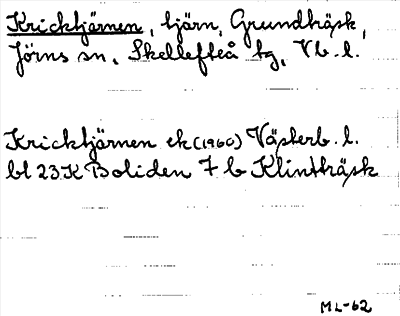 Kricktjärnen, tjärn, Grundträsk,
Jörns sn, Skellefteå tg, Vb. l.
Kricktjärnen ek (1960) Västerb. l.
bl 23K Boliden 7 b Klintträsk
ML-62